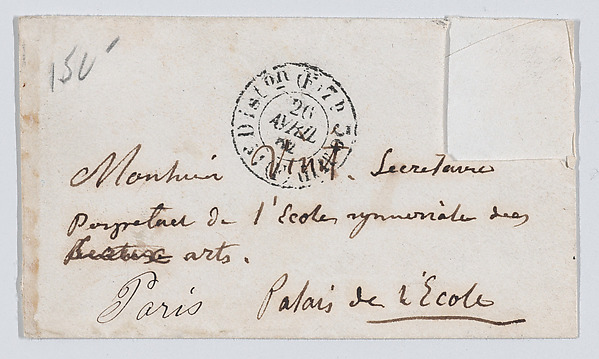 150
Distōn (F. 7h. 3e
26
AVRIL
Monsieur Vinit. Secretaire
Perpetuel de l'Ecole impériale des
Beaux arts.
Paris Palais de l'Ecole